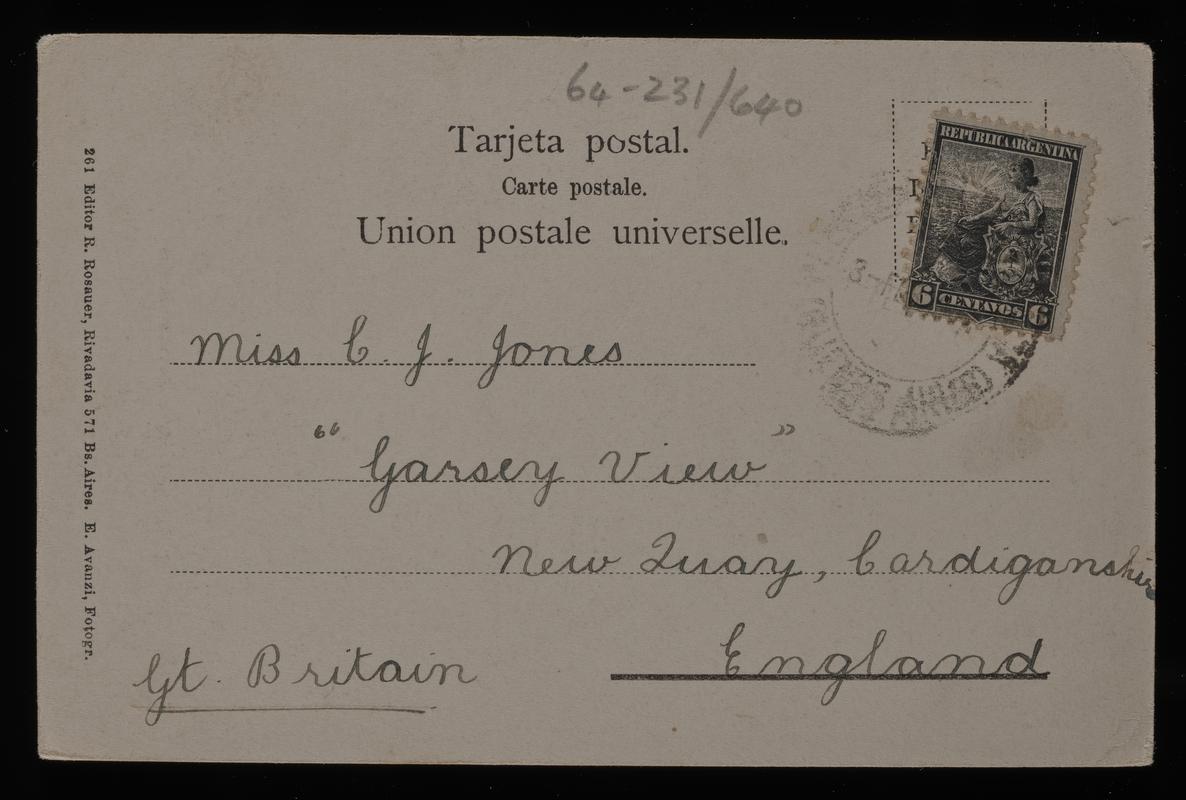 64-231/640
Tarjeta postal.
Carte postale.
Union postale universelle.
REPUBLICA ARGENTINA
6 CENTAVOS 6
BUENOS AIRES
Miss C. J. Jones
"Garsey View"
New Quay, Cardiganshire
England
Gt. Britain
261 Editor R. Rosauer, Rivadavia 571 Bs. Aires. E. Avanzi, Fotogr.